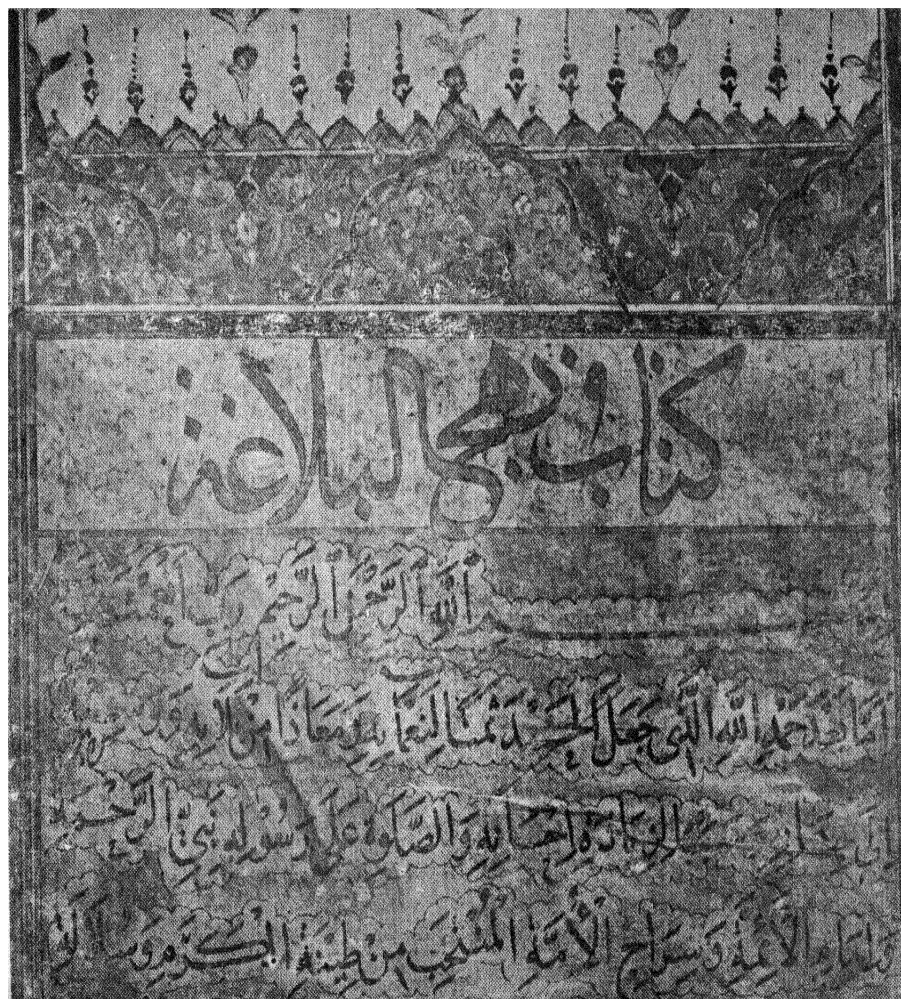 كتاب نهج البلاغة
بسم اللهِ الرَّحْمٰنِ الرَّحِيْمِ رَبِّ
اَمَّا بَعْدَ حَمْدِ اللهِ الَّذِي جَعَلَ الْحَمْدَ ثَمَنًا لِنَعْمَائِهِ وَمَعَاذًا مِنْ بَلَائِهِ
لِزِيَادَةِ اِحْسَانِهِ وَالصَّلَوةِ عَلٰى رَسُوْلِهِ نَبِيِّ الرَّحْمَةِ
وَاِمَامِ الْاَئِمَّةِ وَسِرَاجِ الْاُمَّةِ الْمُنْتَجَبِ مِنْ طِيْنَةِ الْكَرَمِ وَسُلَالَةِ